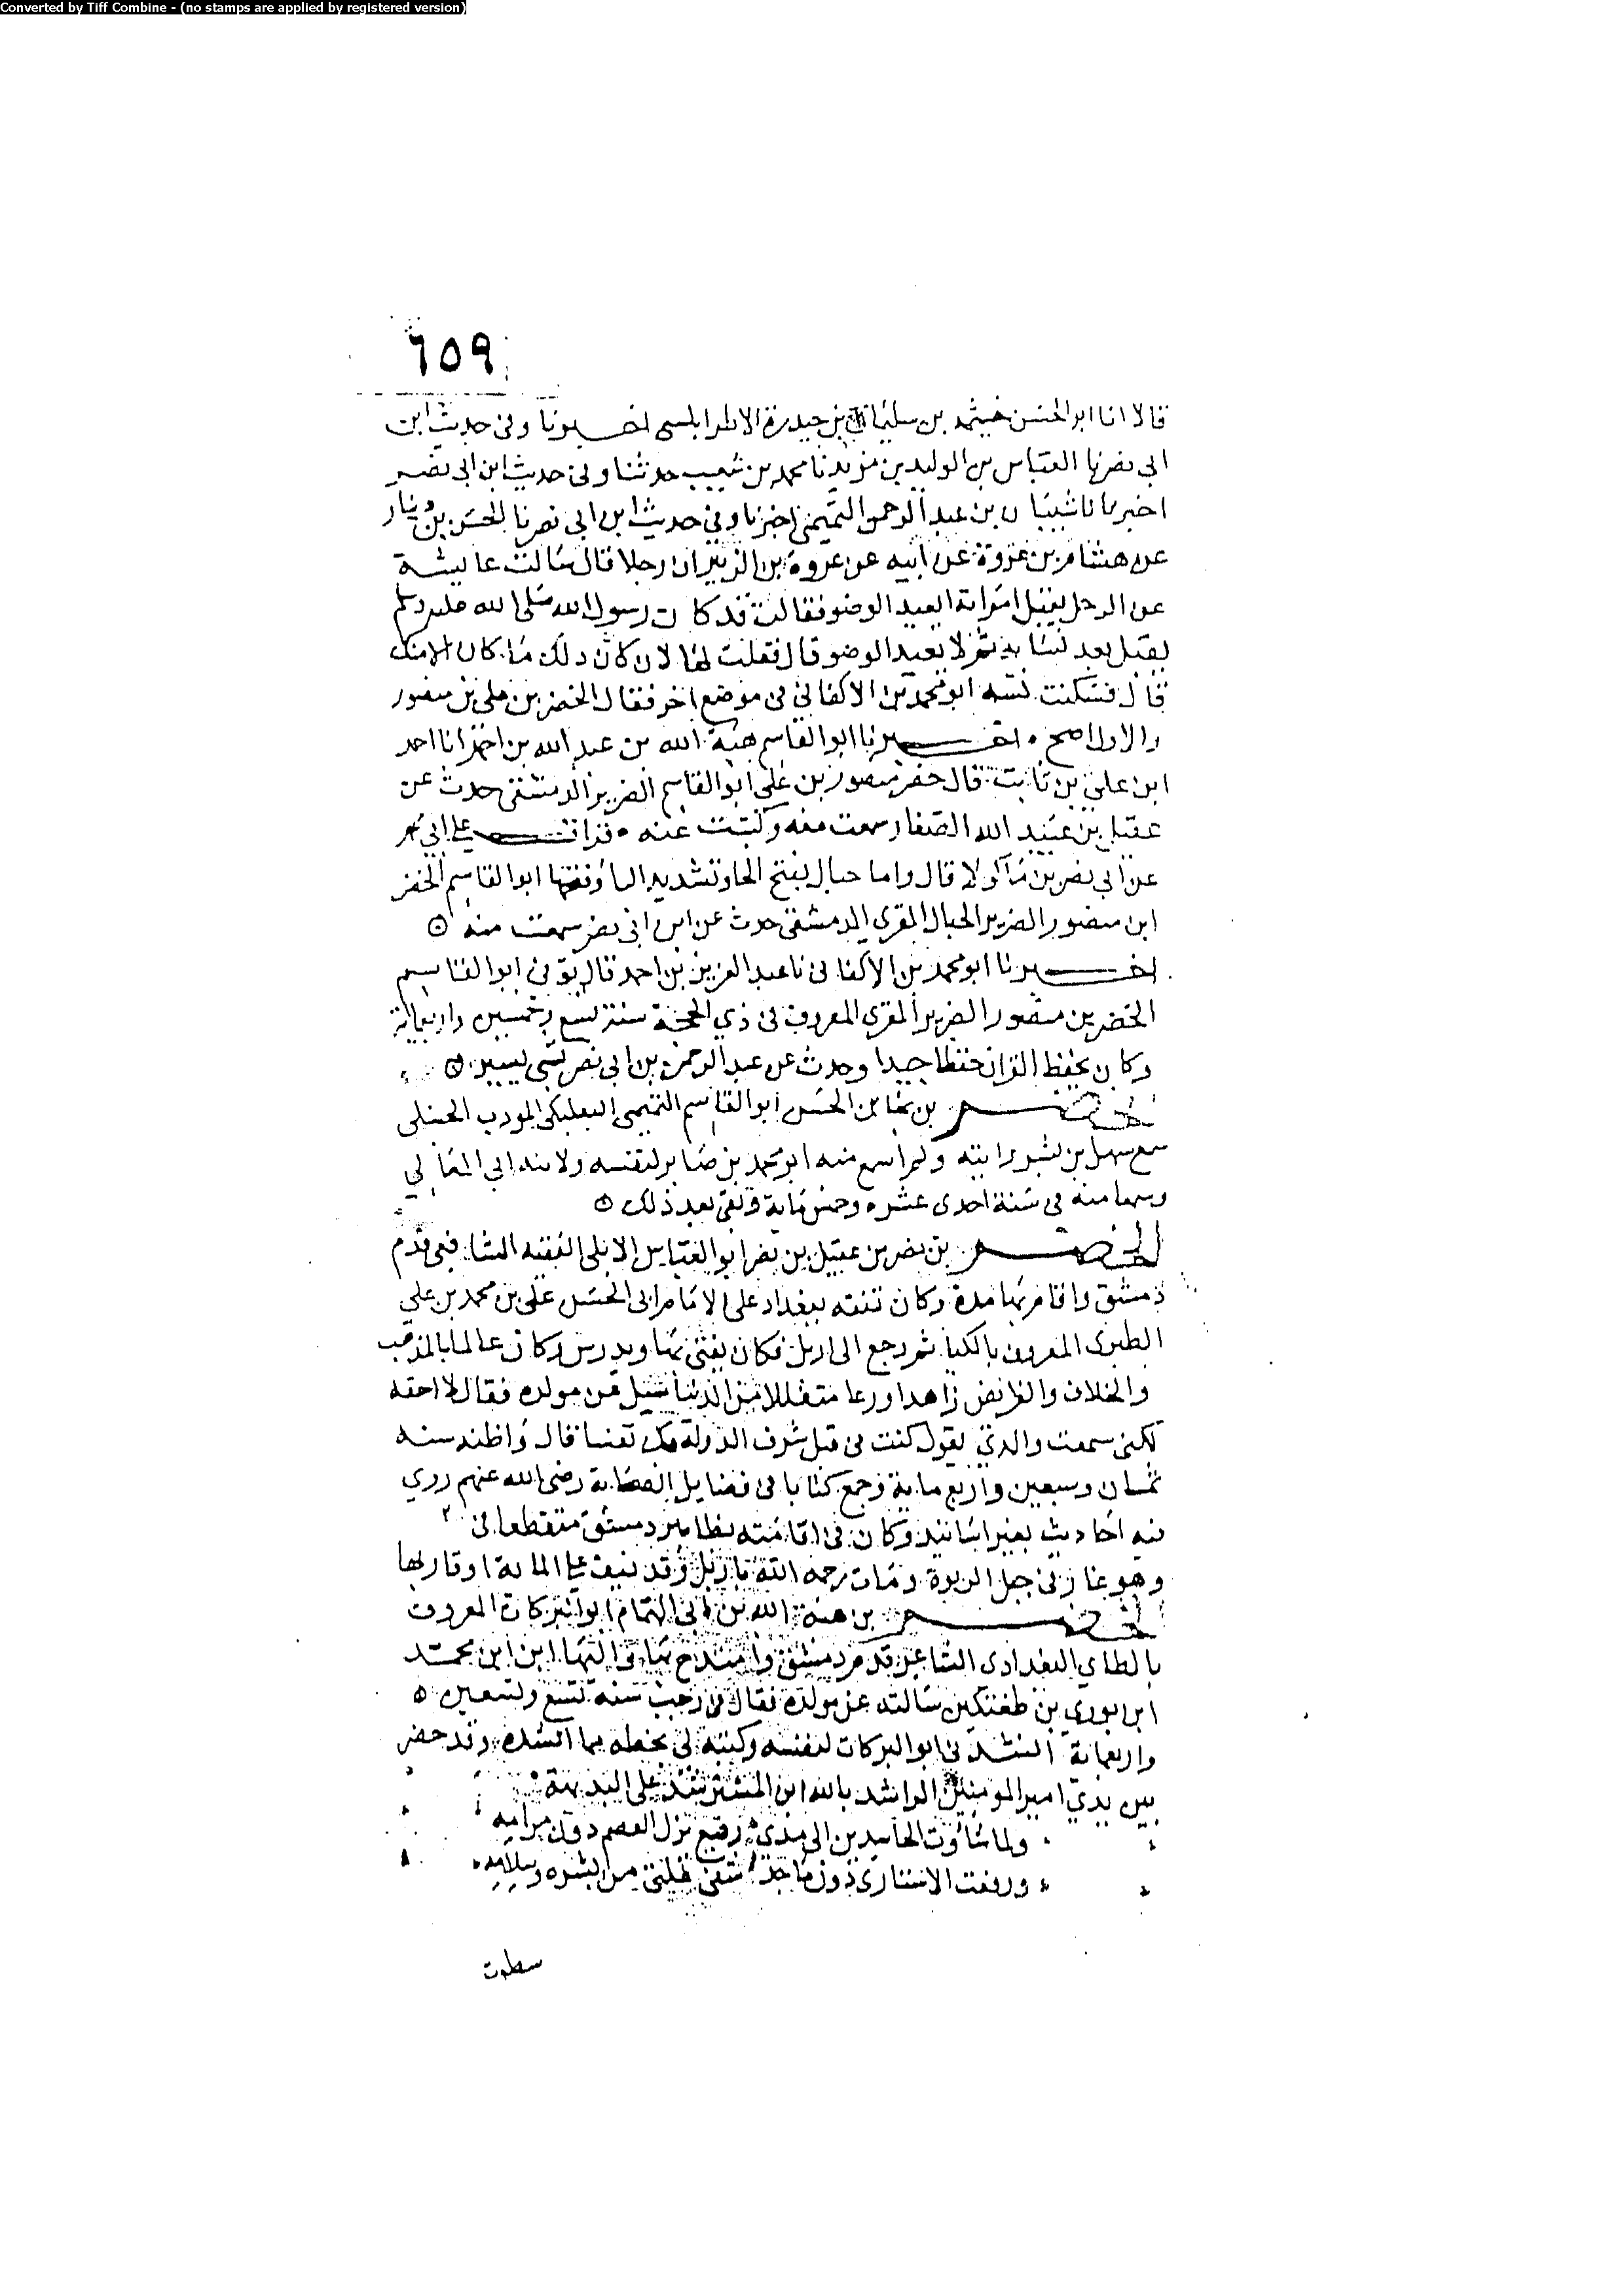 Converted by Tiff Combine - (no stamps are applied by registered version)
٦٥٩
قالا انا ابو الحسن خيثمة بن سليمان بن حيدرة الاطرابلسي اخبرنا وفي حديث ابن
ابي نصر نا العباس بن الوليد بن مزيد نا محمد بن شعيب حدثنا وفي حديث ابن ابي نصر
اخبرنا شيبان بن عبد الرحمن التميمي اخبرنا وفي حديث ابن ابي نصر نا الحسن بن دينار
عن هشام بن عروة عن ابيه عن عروة بن الزبير ان رجلا قال سالت عايشة
عن الرجل يقبل امراته ايعيد الوضو فقالت قد كان رسول الله صلى الله عليه وسلم
يقبل بعد نسايه ثم لا يعيد الوضو قال فقلت لها لان كان ذلك ما كان الا منك
قال فسكتت نسبه ابو محمد بن الاكفاني في موضع اخر فقال الخضر بن علي بن منصور
والاول اصح اخبرنا ابو القاسم هبة الله بن عبد الله بن احمد انا احمد
ابن علي بن ثابت قال خضر بن منصور بن علي ابو القاسم الضرير الدمشقي حدث عن
عقيل بن عبيد الله الصفار سمعت منه وكتبت عنه قرات على ابي محمد
عن ابي نصر بن ماكولا قال واما حبال بفتح الحا وتشديد البا وفتحها ابو القاسم الخضر
ابن منصور الضرير الحبال المقري الدمشقي حدث عن ابن ابي نصر سمعت منه
اخبرنا ابو محمد بن الاكفاني نا عبد العزيز بن احمد قال توفي ابو القاسم
الخضر بن منصور الضرير المقري المعروف في ذي الحجة سنة تسع وخمسين واربعماية
وكان يحفظ القران حفظا جيدا وحدث عن عبد الرحمن بن ابي نصر بشي يسير
الخضر بن الحسن ابو القاسم التميمي البعلبكي المودب الحنبلي
سمع سهل بن بشر ورايته ولم اسمع منه ابو محمد بن صابر لنفسه ولابنه ابي المعالي
وسمعا منه في سنة احدى عشره وخمس ماية وبقي بعد ذلك
الخضر بن نصر بن عقيل بن نصر ابو العباس الاربلي الفقيه الشافعي قدم
دمشق واقام بها مدة وكان تفقه ببغداد على الامام ابي الحسن علي بن محمد بن علي
الطبري المعروف بالكيا ثم رجع الى اربل فكان يفتي بها ويدرس وكان عالما بالمذهب
والخلاف والفرايض زاهدا ورعا متقللا من الدنيا سيل عن مولده فقال لا احقه
لكني سمعت والدي يقول كنت في قبل شرف الدولة قال واظنه سنه
ثمان وسبعين واربع ماية وجمع كتابا في فضايل الصحابة رضي الله عنهم روي
فيه احاديث بغير اسانيد وكان في اقامته بظاهر دمشق منقطعا في
وهو غار في جبل الربوة ومات رحمه الله باربل وقد نيف على الماية او قاربها
الخضر بن هبة الله بن ابي الهمام ابو البركات المعروف
بالطاي البغدادي الشاعر قدم دمشق وامتدح بها واليها ابن ابن محمد
ابن بوري بن طغتكين سالته عن مولده فقال في رجب سنة تسع وتسعين
واربعماية انشدني ابو البركات لنفسه وكتبه لي بخطه مما انشده وقد حضر
بين يدي امير المومنين الراشد بالله ابن المسترشد على البديهة
ولما شاوت الحاسدين الى مدى رفيع تزل العصم دون مراميه
ورفعت الاستار دون ماجد من بشره وسلامه
سطوت